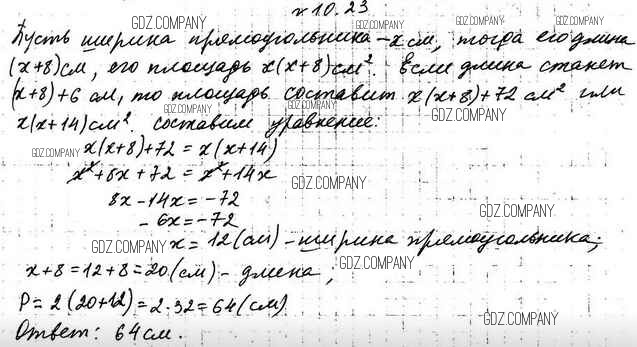 №10.23
GDZ.COMPANY
Пусть ширина прямоугольника -x см, тогда его длина
GDZ.COMPANY
(x+8)см, его площадь x(x+8)см². Если длина станет
GDZ.COMPANY
(x+8)+6 см, то площадь составит x(x+8)+72 см² или
GDZ.COMPANY GDZ.COMPANY
x(x+14)см². составим уравнение:
GDZ.COMPANY x(x+8)+72 = x(x+14)
x²+8x+72 = x²+14x
GDZ.COMPANY
8x-14x=-72
GDZ.COMPANY
-6x=-72
GDZ.COMPANY x= 12(см) -ширина прямоугольника;
GDZ.COMPANY
x+8=12+8=20(см)- длина;
P=2(20+12)=2·32=64(см)
GDZ.COMPANY
Ответ: 64см.